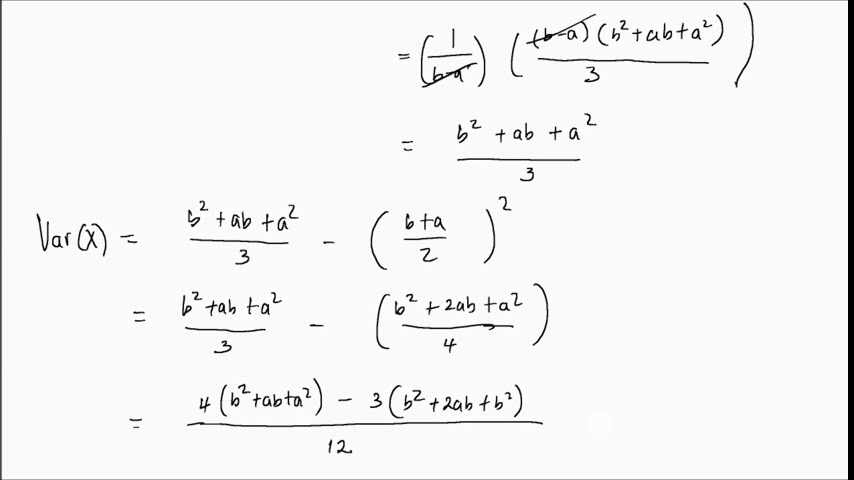 = (1/(b-a)) ((b-a)(b²+ab+a²)/3)
= (b²+ab+a²)/3
Var(X) = (b²+ab+a²)/3 - ((b+a)/2)²
= (b²+ab+a²)/3 - ((b²+2ab+a²)/4)
= (4(b²+ab+a²) - 3(b²+2ab+b²))/12